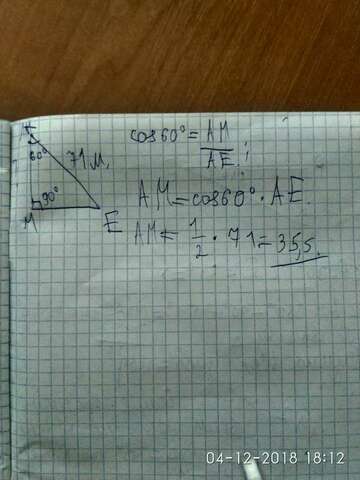 A
60°
71 м.
90°
M
E
cos60° = AM / AE;
AM = cos60° · AE.
AM = 1/2 · 71 = 35,5.
04-12-2018 18:12